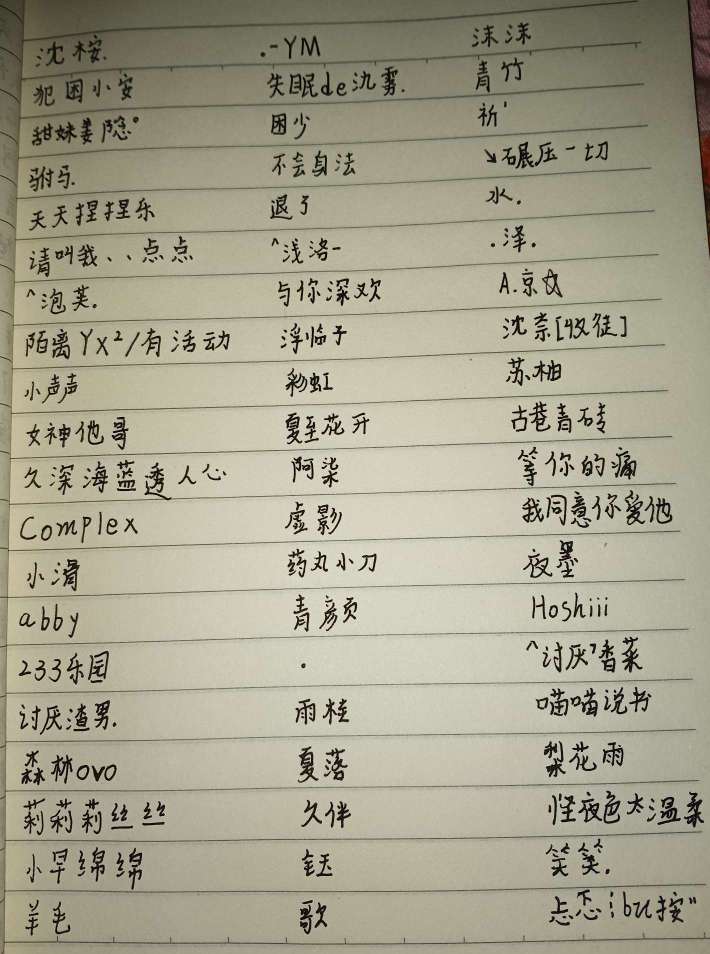 沈桉. .-YM 沫沫
犯困小安 失眠de氿雾. 青竹
甜妹姜隐° 困少 祈'
驸马. 不会身法 ↘碾压一切
天天捏捏乐 退了 水.
请叫我、、点点 ^浅洛- .泽.
^泡芙. 与你深欢 A.京
陌离Yx²/有活动 浮临子 沈柰[收徒]
小声声 彩虹 苏柚
女神他哥 夏至花开 古巷青砖
久深海蓝透人心 阿柒 等你的痛
Complex 虚影 我同意你爱他
小滑 药丸小刀 夜墨
abby 青彦页 Hoshiii
233乐园 . ^讨厌香菜
讨厌渣男. 雨桂 喵喵说书
森林ovo 夏落 梨花雨
莉莉莉丝丝 久伴 怪夜色太温柔
小早绵绵 钰 笑笑.
羊毛 歌